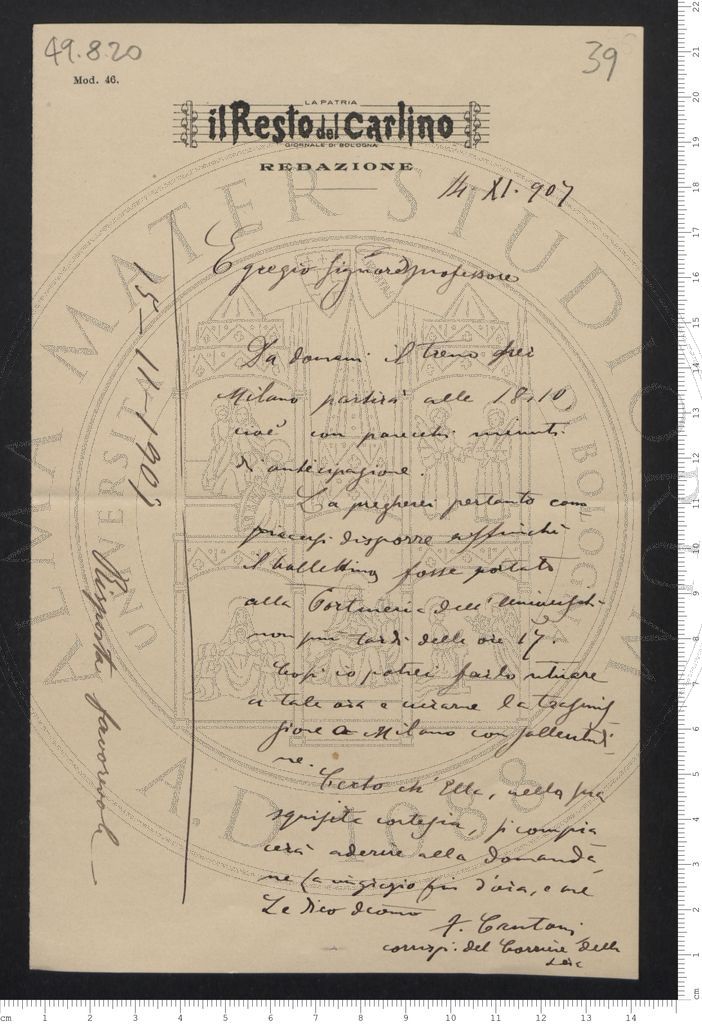 49.8.20
39
Mod. 46.
LA PATRIA
il Resto del Carlino
GIORNALE DI BOLOGNA
REDAZIONE
14. XI. 907
Egregio Signor professore
Da domani il treno per
Milano partirà alle 18,10,
cioè con parecchi minuti
di anticipazione.
La pregherei pertanto com
piacersi disporre affinchè
il bollettino fosse portato
alla Portineria dell'Universit
non più tardi delle ore 17.
Così io potrei farlo ritirare
a tale ora e curarne la trasmis
sione a Milano con sollecitudi
ne.
Certo ch'Ella, nella sua
squisita cortesia, si compia
cerà aderire alla domanda,
ne La ringrazio fin d'ora, e me
Le dico dev.mo
F. Cantoni
corrisp. del Corriere della
Sera
15-11-1907
Risposta favorevole -
ALMA MATER STUDIORUM
A.D. 1088